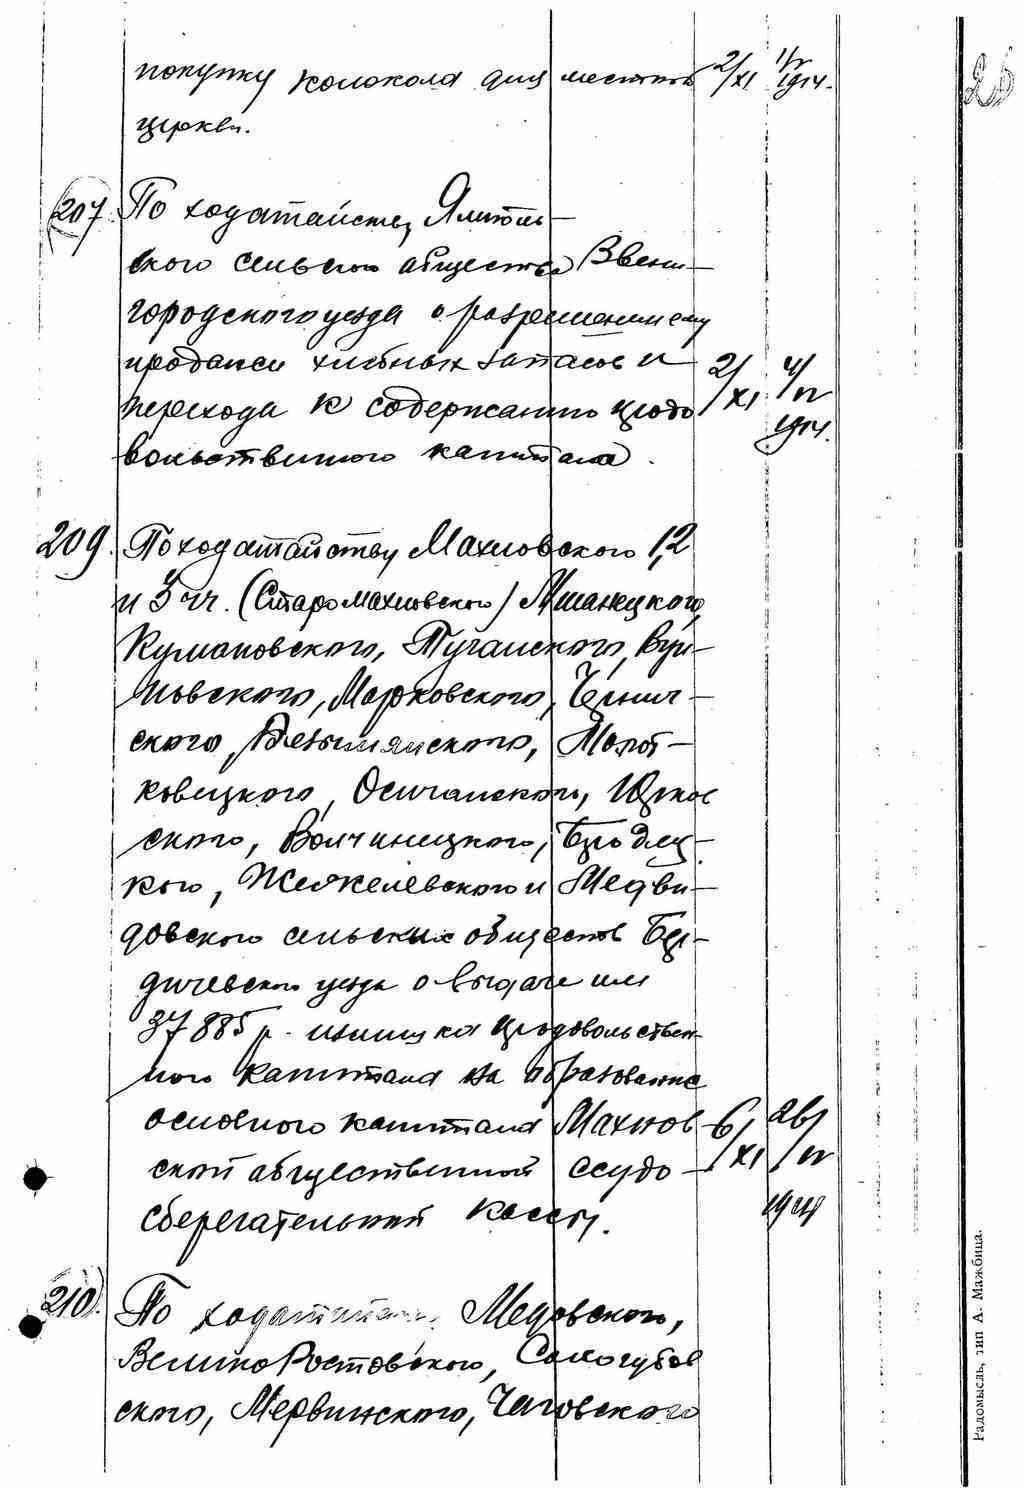 покупку колокола для местной 2/XI 1/IV 1914.
церкви.
26
207. По ходатайству Ямполь-
ского сельского общества Звени-
городского уезда о разрешении ему
продажи хлебных запасов и 2/XI 4/IV 1914.
перехода к содержанию продо
вольственного капитала.
209. По ходатайству Махновского 1,2
и 3 чч. (Старомахновского) Мшанецкого,
Кумановского, Тучанского, Вуй-
новского, Марковского,
ского, Безымянского, Молот-
ковецкого, Осичанского,
ского, Волчинецкого, Бродец-
кого, Жежелевского и Медви-
довского сельских обществ Бер-
дичевского уезда о выдаче им
37885 р. излишка продовольствен-
ного капитала на образование
основного капитала Махнов 6/XI 26/IV 1914
ской общественной ссудо-
сберегательной кассы.
210. По ходатайству Медовского,
Великоростовского, Сологубов
ского, Мервинского, Чаговского
Радомысль, тип А. Мажбица.